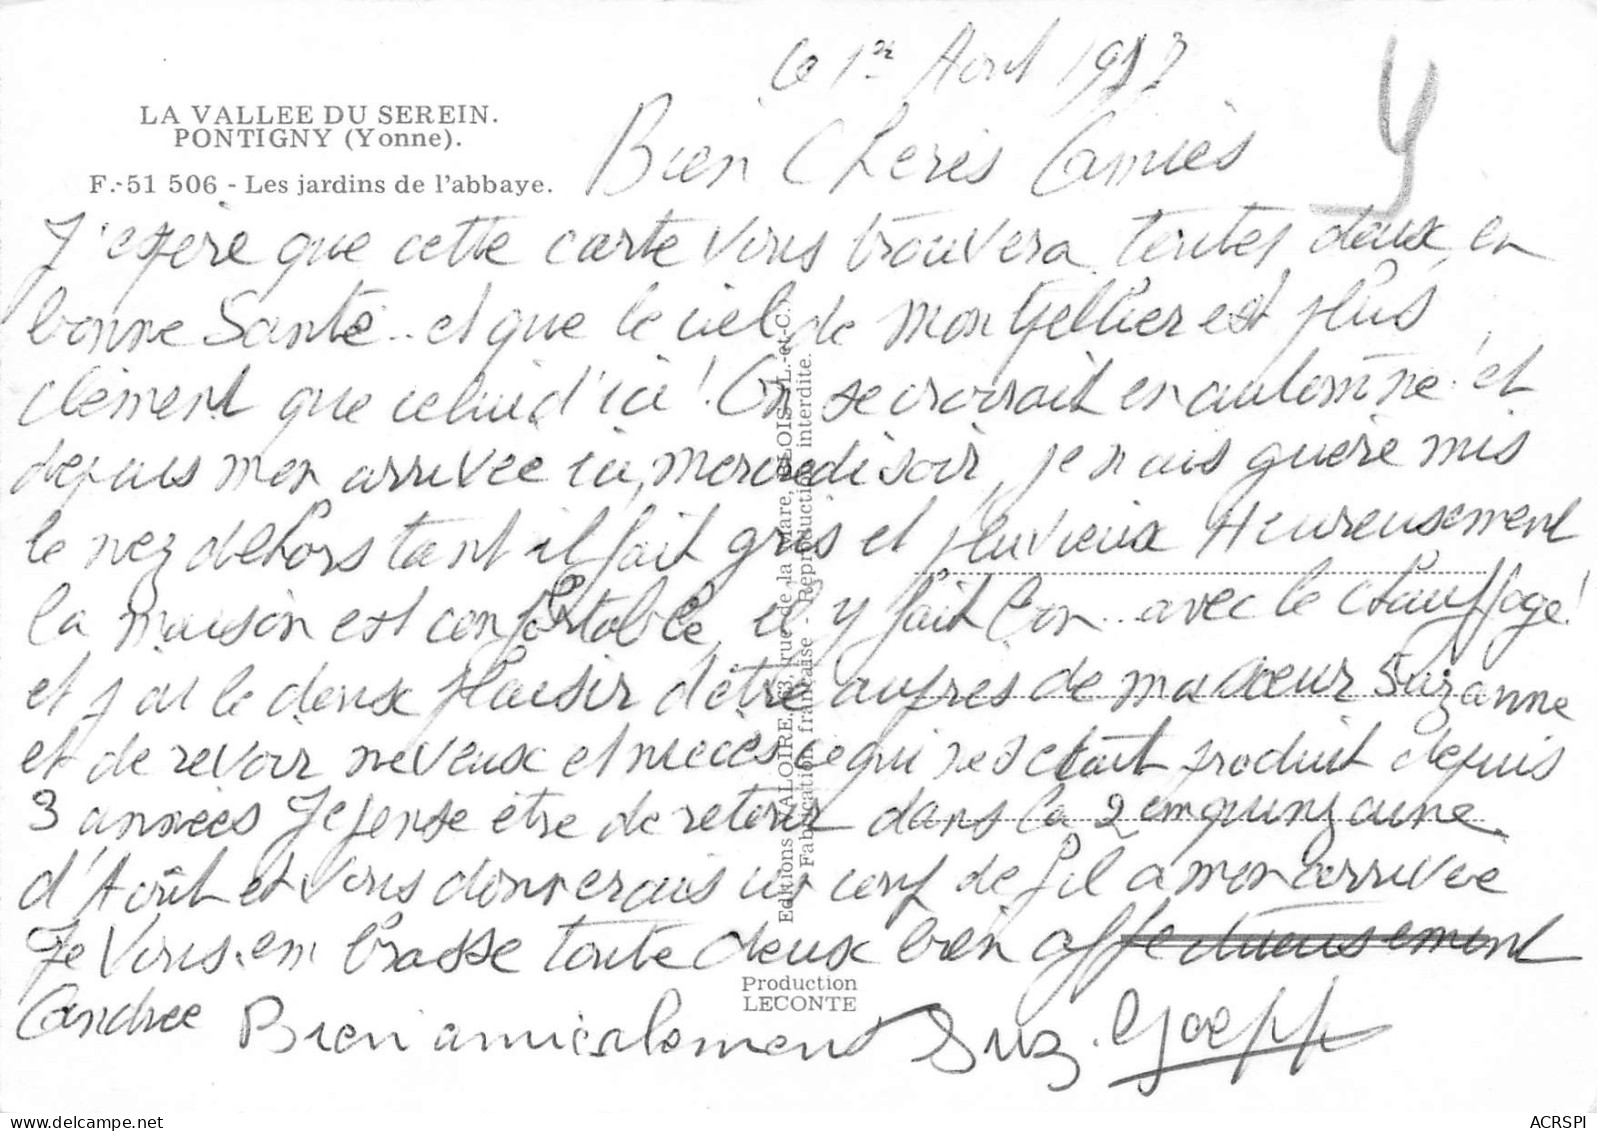 le 1er Août 19
LA VALLEE DU SEREIN.
PONTIGNY (Yonne).
F.-51 506 - Les jardins de l'abbaye.
Bien Chères Amies
J'espère que cette carte vous trouvera toutes deux en
bonne Santé.. et que le ciel de Montpellier est plus
clément que celui d'ici! On se croirait en automne! et
depuis mon arrivée ici, mercredi soir, je n'ais guère mis
le nez dehors tant il fait gris et pluvieux Heureusement
la maison est confortable, il y fait bon... avec le chauffage!
et j'ai le doux plaisir d'être auprès de ma soeur Suzanne
et de revoir neveux et nièces ce qui ne s'était produit depuis
3 années Je pense être de retour dans la 2em quinzaine
d'Août et vous donnerais un coup de fil à mon arrivée
Je vous embrasse toute deux bien affectueusement
Andrée Bien amicalement Suz. Goepp
Editions VALOIRE, 63, rue de la Mare, BLOIS L.-et-C.
Fabrication française - Reproduction interdite.
Production
LECONTE
ACRSPI